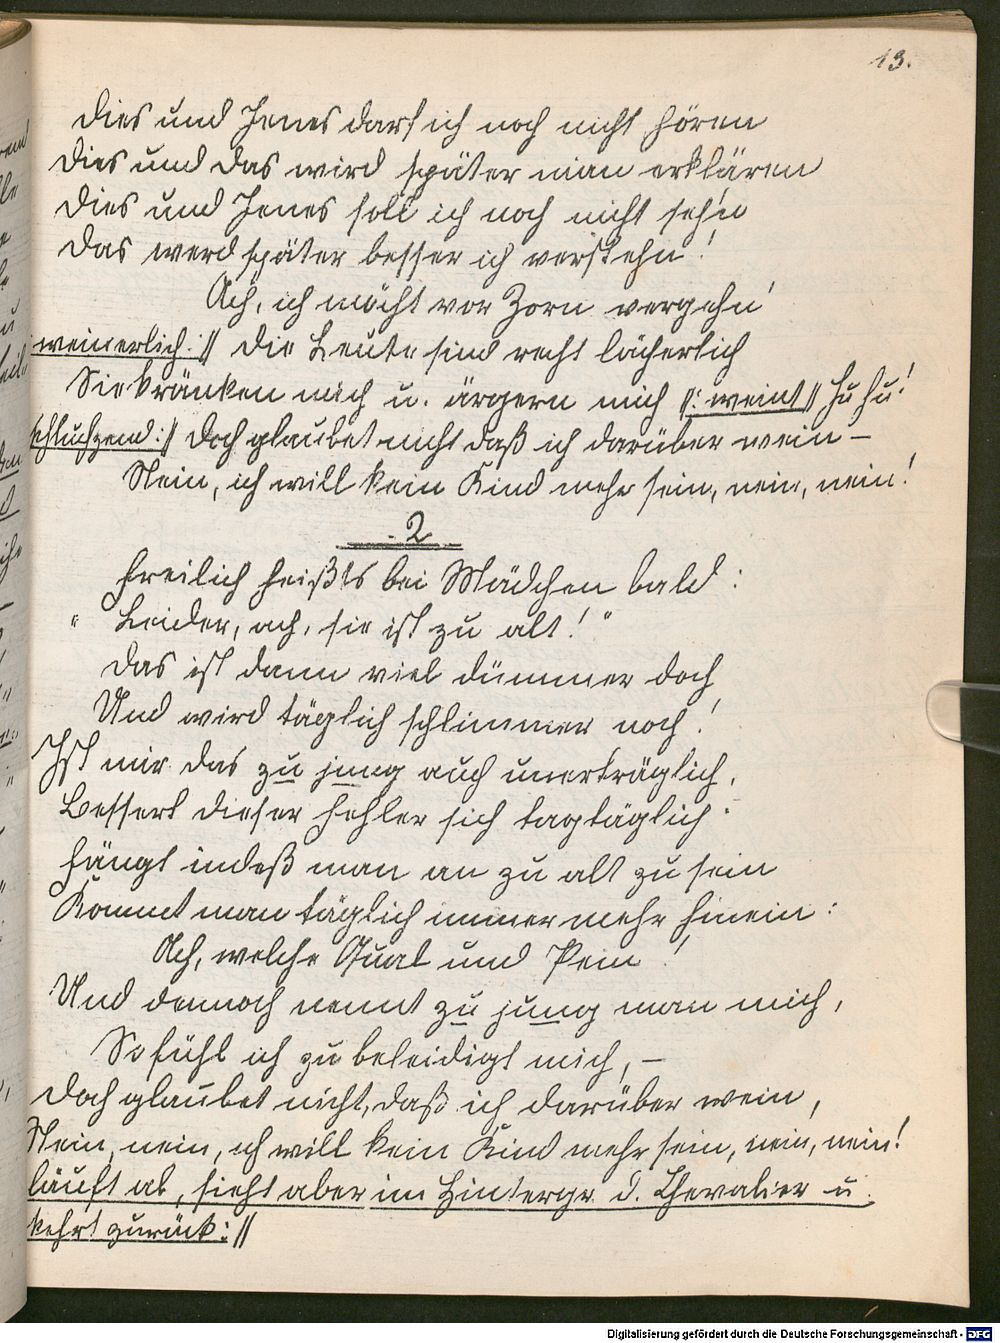 13.
Dies und Jenes darf ich noch nicht hören
Dies und das wird später man erklären
Dies und Jenes soll ich noch nicht seh'n
Das werd später besser ich verstehn!
Ach, ich möcht vor Zorn vergehn'
weinerlich:// Die Leute sind recht lächerlich
Sie kränken mich u. ärgern mich //: weint // hu hu!
schluchzend:// Doch glaubet nicht daß ich darüber wein –
Nein, ich will kein Kind mehr sein, nein, nein!
2
Freilich heißt's bei Mädchen bald:
"Leider, ach, sie ist zu alt!"
Das ist dann viel dümmer doch
Und wird täglich schlimmer noch!
Ist mir das zu jung auch unerträglich,
Bessert dieser Fehler sich tagtäglich.
Fängt indeß man an zu alt zu sein
Kommt man täglich immer mehr hinein:
Ach, welche Qual und Pein!
Und dennoch nennt zu jung man mich,
So fühl ich zu beleidigt mich, –
Doch glaubet nicht, daß ich darüber wein,
Nein, nein, ich will kein Kind mehr sein, nein, nein!
läuft ab, sieht aber im Hintergr. d. Chevalier u.
kehrt zurück://
Digitalisierung gefördert durch die Deutsche Forschungsgemeinschaft - DFG